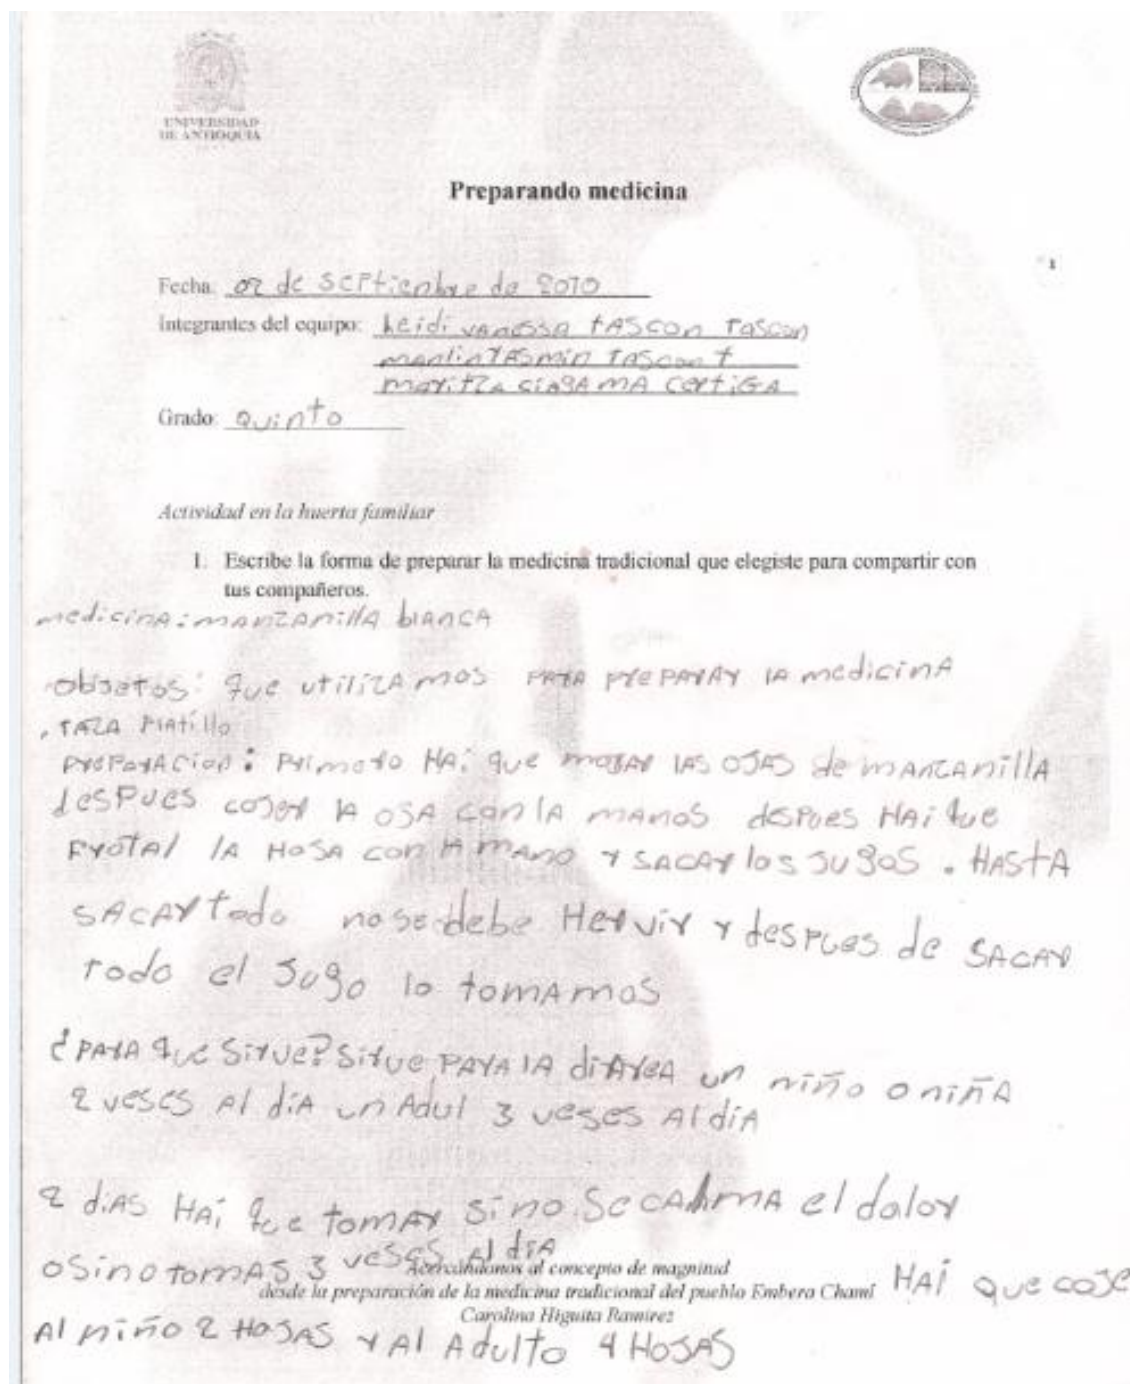 UNIVERSIDAD
DE ANTIOQUIA
Preparando medicina
1
Fecha: 02 de septienbre de 2010
Integrantes del equipo: heidi vanessa tascon tascon
marlin yasmin tascon t
maritza ciagama certiga
Grado: Quinto
Actividad en la huerta familiar
1. Escribe la forma de preparar la medicina tradicional que elegiste para compartir con
tus compañeros.
medicina: manzanilla blanca
objetos: que utilizamos para preparar la medicina
. taza platillo
preparacion: primero hai que mojar las ojas de manzanilla
despues cojer la oja con la manos despues hai que
frotal la hoja con la mano y sacar los jugos. hasta
sacar todo no se debe hervir y despues de sacar
todo el jugo lo tomamos
¿para que sirve? sirve para la diarea un niño o niña
2 veses al dia un adul 3 veses al dia
2 dias hai que tomar si no se calma el dolor
o sino tomas 3 veses al dia
Acercándonos al concepto de magnitud
desde la preparación de la medicina tradicional del pueblo Embera Chamí hai que coje
Carolina Higuita Ramírez
al niño 2 hojas y al adulto 4 hojas